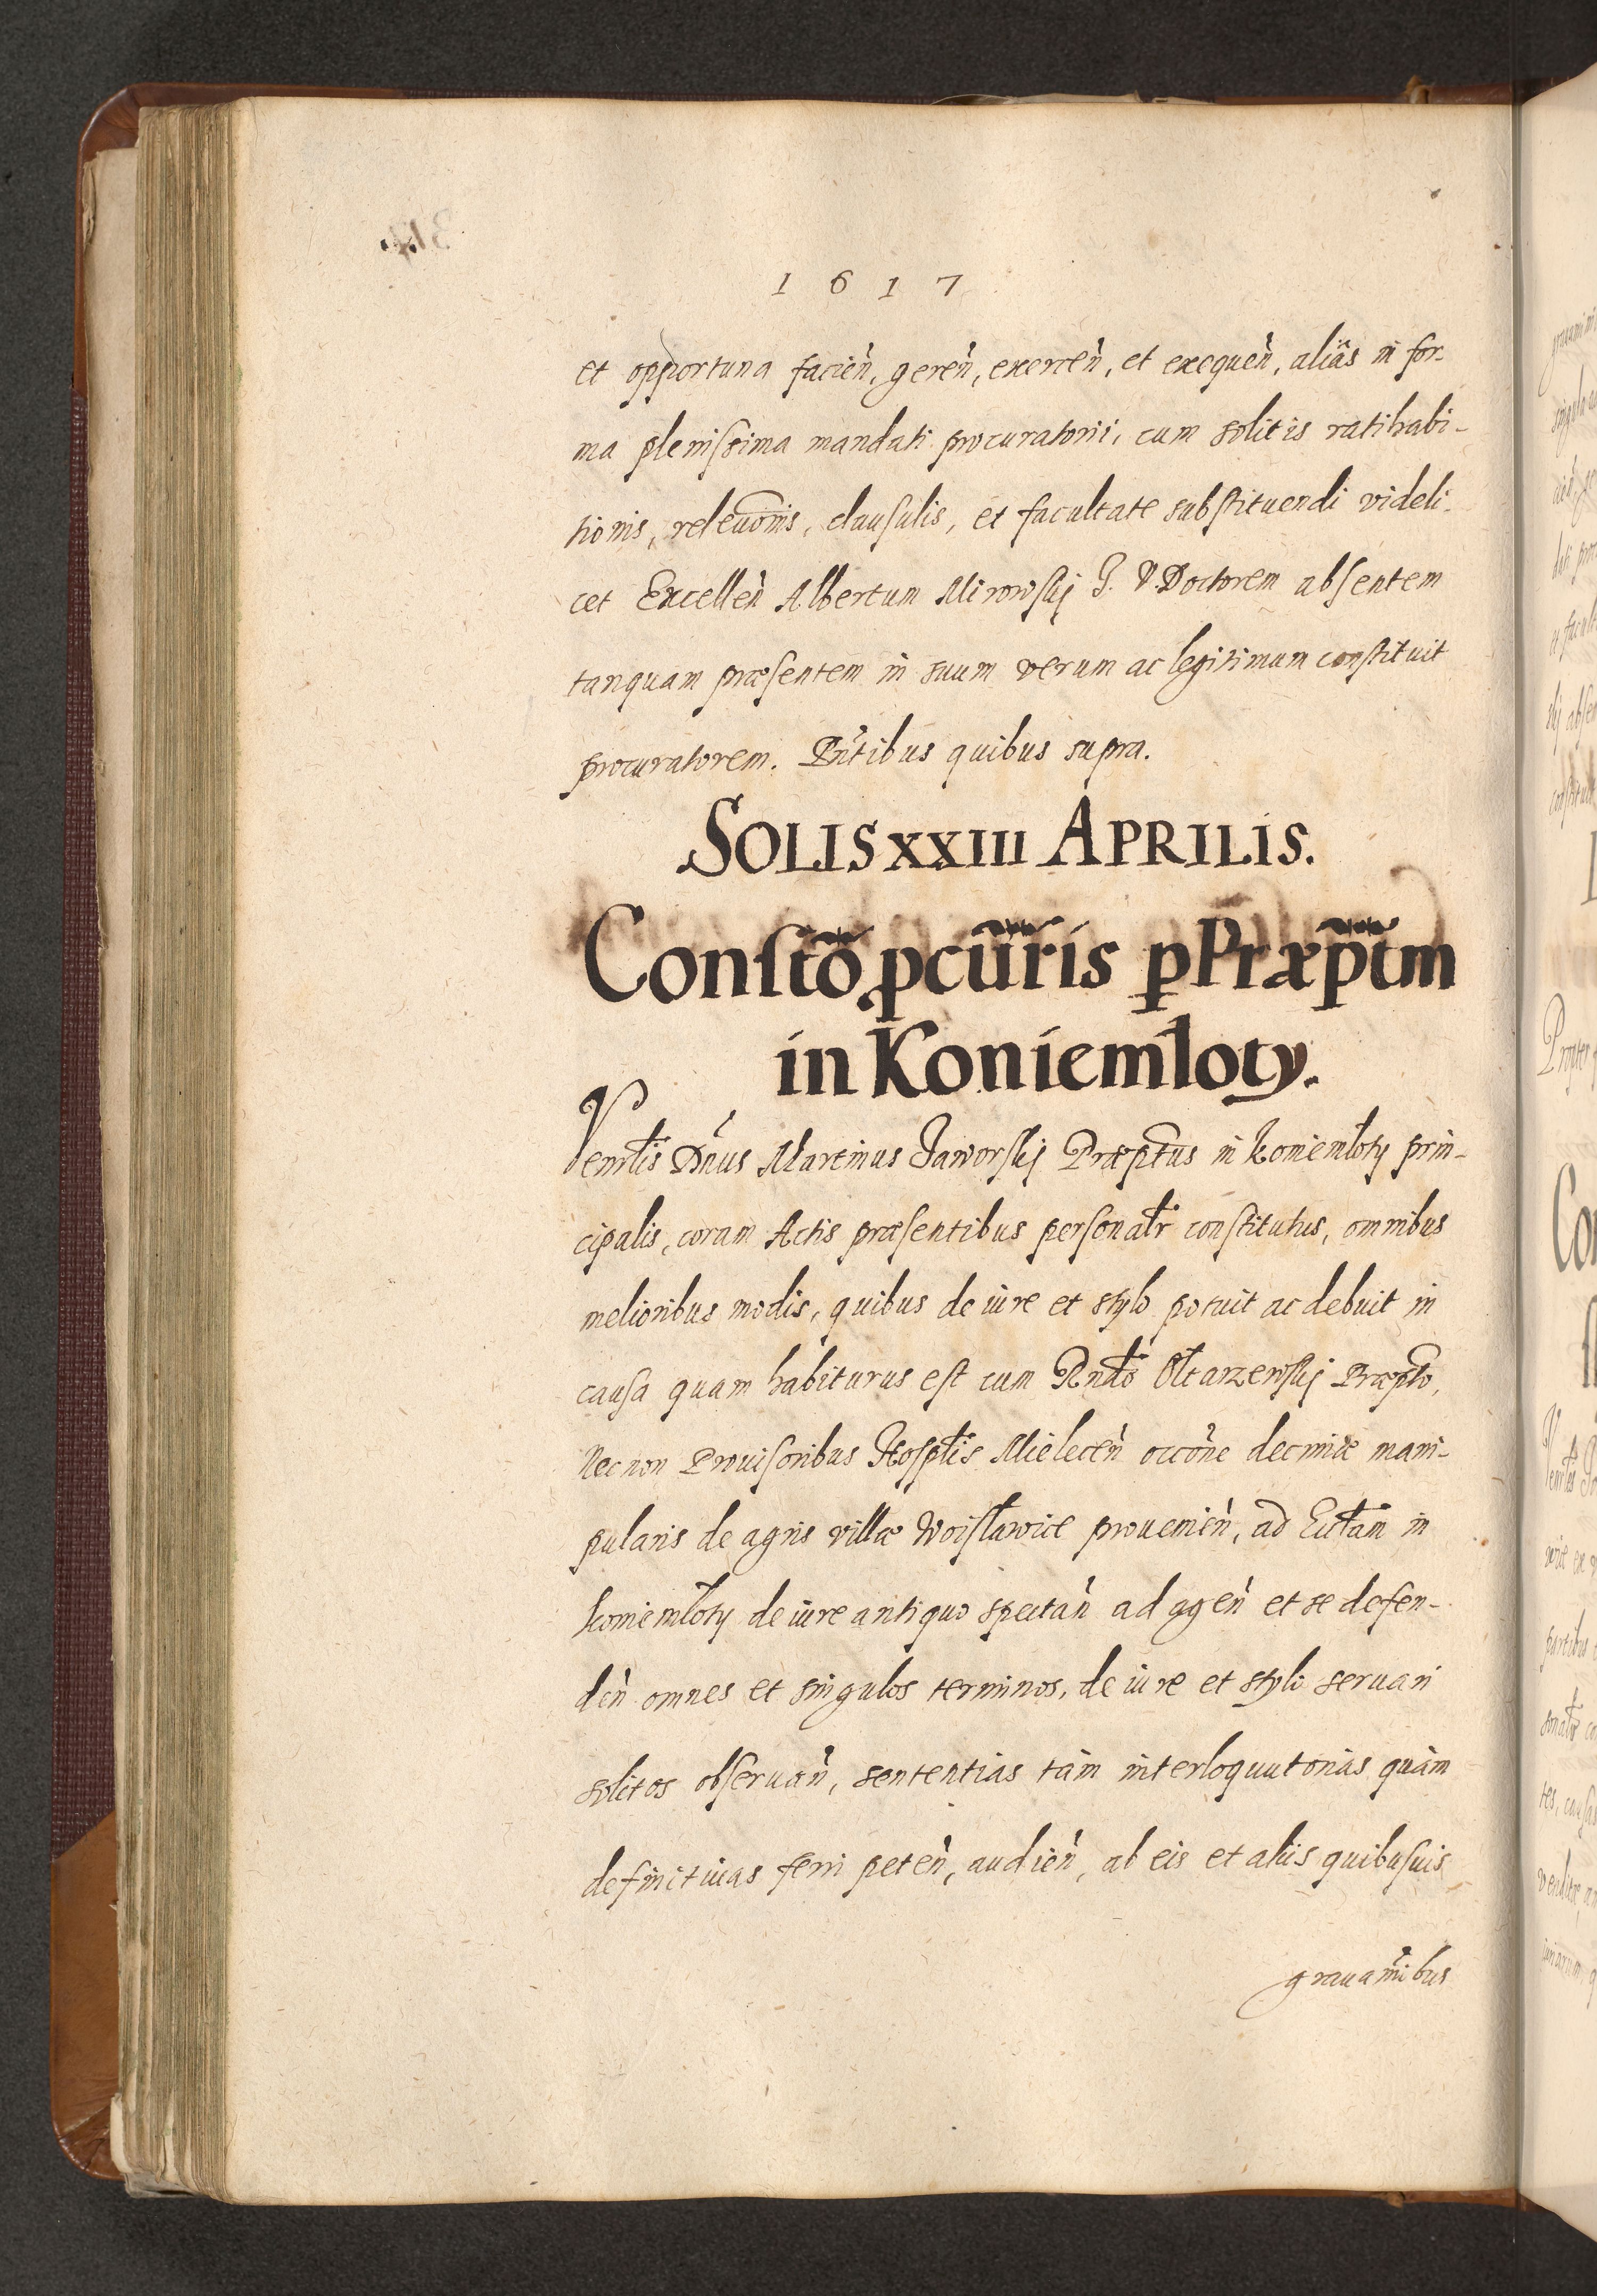 1617
et opportuna facień, gereń, exerceń, et exequeń, aliâs in for-
ma plenissima mandati procuratorii, cum solitis ratihabi-
tionis, releuõnis, clausulis, et facultate substituendi videli-
cet Excelleń Albertum Mirowskj J. V. Doctorem absentem
tanquam præsentem in suum verum ac legitimum constituit
procuratorem. Pñtibus quibus supra.
SOLIS XXIII APRILIS.
Constõ pcũris p Præptm
in Koniemłoty.
Venrłis Dñus Martinus Jaworskj Præptus in Koniemłoty prin-
cipalis, coram Actis præsentibus personalr constitutus, omnibus
melioribus modis, quibus de iure et stylo potuit ac debuit in
causa quam habiturus est cum Rndo Ołtarzewskj Præpto,
Nec non Prouisoribus Hospłis Mieleceń occõne decimæ mani-
pularis de agris villæ Woisławice prouenień, ad Eccłam in
Koniemłoty de iure antiquo spectań ad ageń et se defen-
deń omnes et singulos terminos, de iure et stylo seruari
solitos obseruań, sententias tàm interloquutorias quàm
definitiuas ferri peteń, audień, ab eis et aliis quibusuis
grauamĩbus